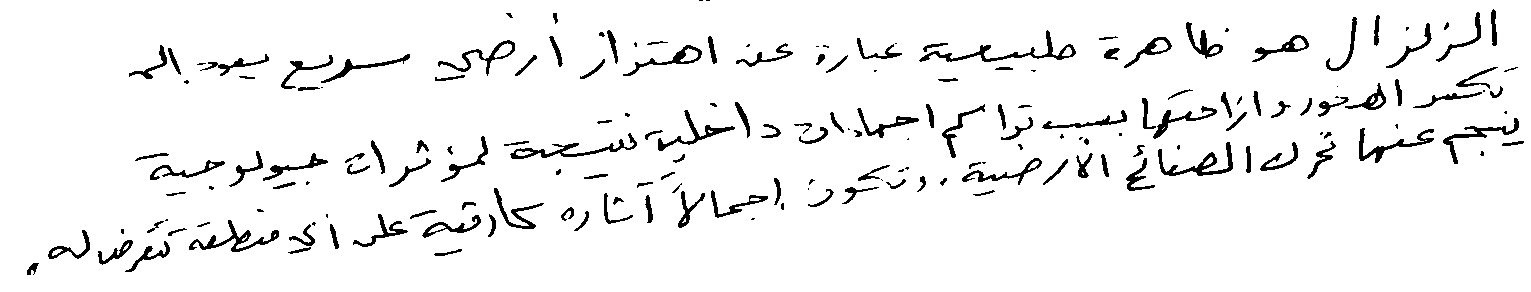 الزلزال هو ظاهرة طبيعية عبارة عن اهتزاز أرضي سريع يعود إلى
تكسر الصخور وإزاحتها بسبب تراكم اجهادات داخلية نتيجة لمؤثرات جيولوجية
ينجم عنها تحرك الصفائح الأرضية. وتكون إجمالاً آثاره كارثية على أي منطقة تتعرض له.